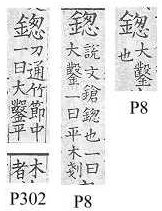 鍯
刀通竹節中
一曰大鑿平
木
者
P302
鍯
說文鎗鍯也一曰
大鑿一曰平木
P8
鍯
大鑿
也
P8